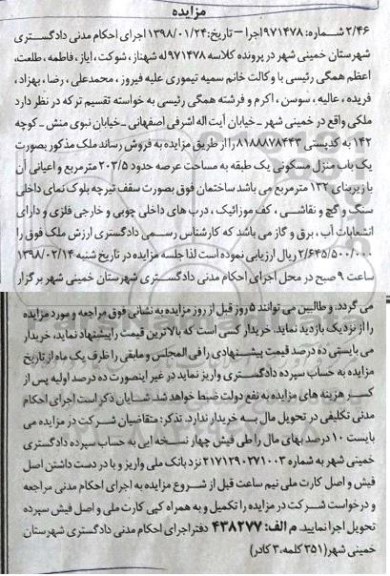 مزایده
۲/۴۶ شماره: ۹۷۱۴۷۸اجرا - تاریخ:۱۳۹۸/۰۱/۲۴ اجرای احکام مدنی دادگستری
شهرستان خمینی شهر در پرونده کلاسه ۹۷۱۴۷۸ له شهناز ، شوکت ، ایاز ، فاطمه ، طلعت،
اعظم همگی رئیسی با وکالت خانم سمیه تیموری علیه فیروز ، محمدعلی ، رضا ، بهزاد ،
فریده ، عالیه ، سوسن ، اکرم و فرشته همگی رئیسی به خواسته تقسیم ترکه در نظر دارد
ملکی واقع در خمینی شهر _ خیابان آیت اله اشرفی اصفهانی _ خیابان نبوی منش _ کوچه
۱۴۲ به کدپستی ۸۱۸۸۸۷۸۴۴۳ را از طریق مزایده به فروش رساند ملک مذکور بصورت
یک باب منزل مسکونی یک طبقه به مساحت عرصه حدود ۲۰۳/۵ مترمربع و اعیانی آن
با زیربنای ۱۳۲ مترمربع می باشد ساختمان فوق بصورت سقف تیرچه بلوک نمای داخلی
سنگ و گچ و نقاشی ، کف موزائیک ، درب های داخلی چوبی و خارجی فلزی و دارای
انشعابات آب ، برق و گاز می باشد که کارشناس رسمی دادگستری ارزش ملک فوق را
۲/۶۴۵/۵۰۰/۰۰۰ ریال ارزیابی نموده است لذا جلسه مزایده در تاریخ شنبه ۱۳۹۸/۰۲/۱۴
ساعت ۹ صبح در محل اجرای احکام مدنی دادگستری شهرستان خمینی شهر برگزار
می گردد. و طالبین می توانند ۵ روز قبل از روز مزایده به نشانی فوق مراجعه و مورد مزایده
را از نزدیک بازدید نماید. خریدار کسی است که بالاترین قیمت را پیشنهاد نماید، خریدار
می بایستی ده درصد قیمت پیشنهادی را فی المجلس و مابقی را ظرف یک ماه از تاریخ
مزایده به حساب سپرده دادگستری واریز نماید در غیر اینصورت ده درصد اولیه پس از
کسر هزینه های مزایده به نفع دولت ضبط خواهد شد. شایان ذکر است اجرای احکام
مدنی تکلیفی در تحویل مال به خریدار ندارد. تذکر: متقاضیان شرکت در مزایده می
بایست ۱۰ درصد بهای مال را طی فیش چهار نسخه ایی به حساب سپرده دادگستری
خمینی شهر به شماره ۲۱۷۱۲۹۰۲۷۱۰۰۳ نزد بانک ملی واریز و با در دست داشتن اصل
فیش و اصل کارت ملی نیم ساعت قبل از شروع مزایده به اجرای احکام مدنی مراجعه
و درخواست شرکت در مزایده را تکمیل و به همراه کپی کارت ملی و اصل فیش سپرده
تحویل اجرا نمایید. م الف: ۴۳۸۲۷۷ دفتر اجرای احکام مدنی دادگستری شهرستان
خمینی شهر(۳۵۱ کلمه، ۳ کادر)